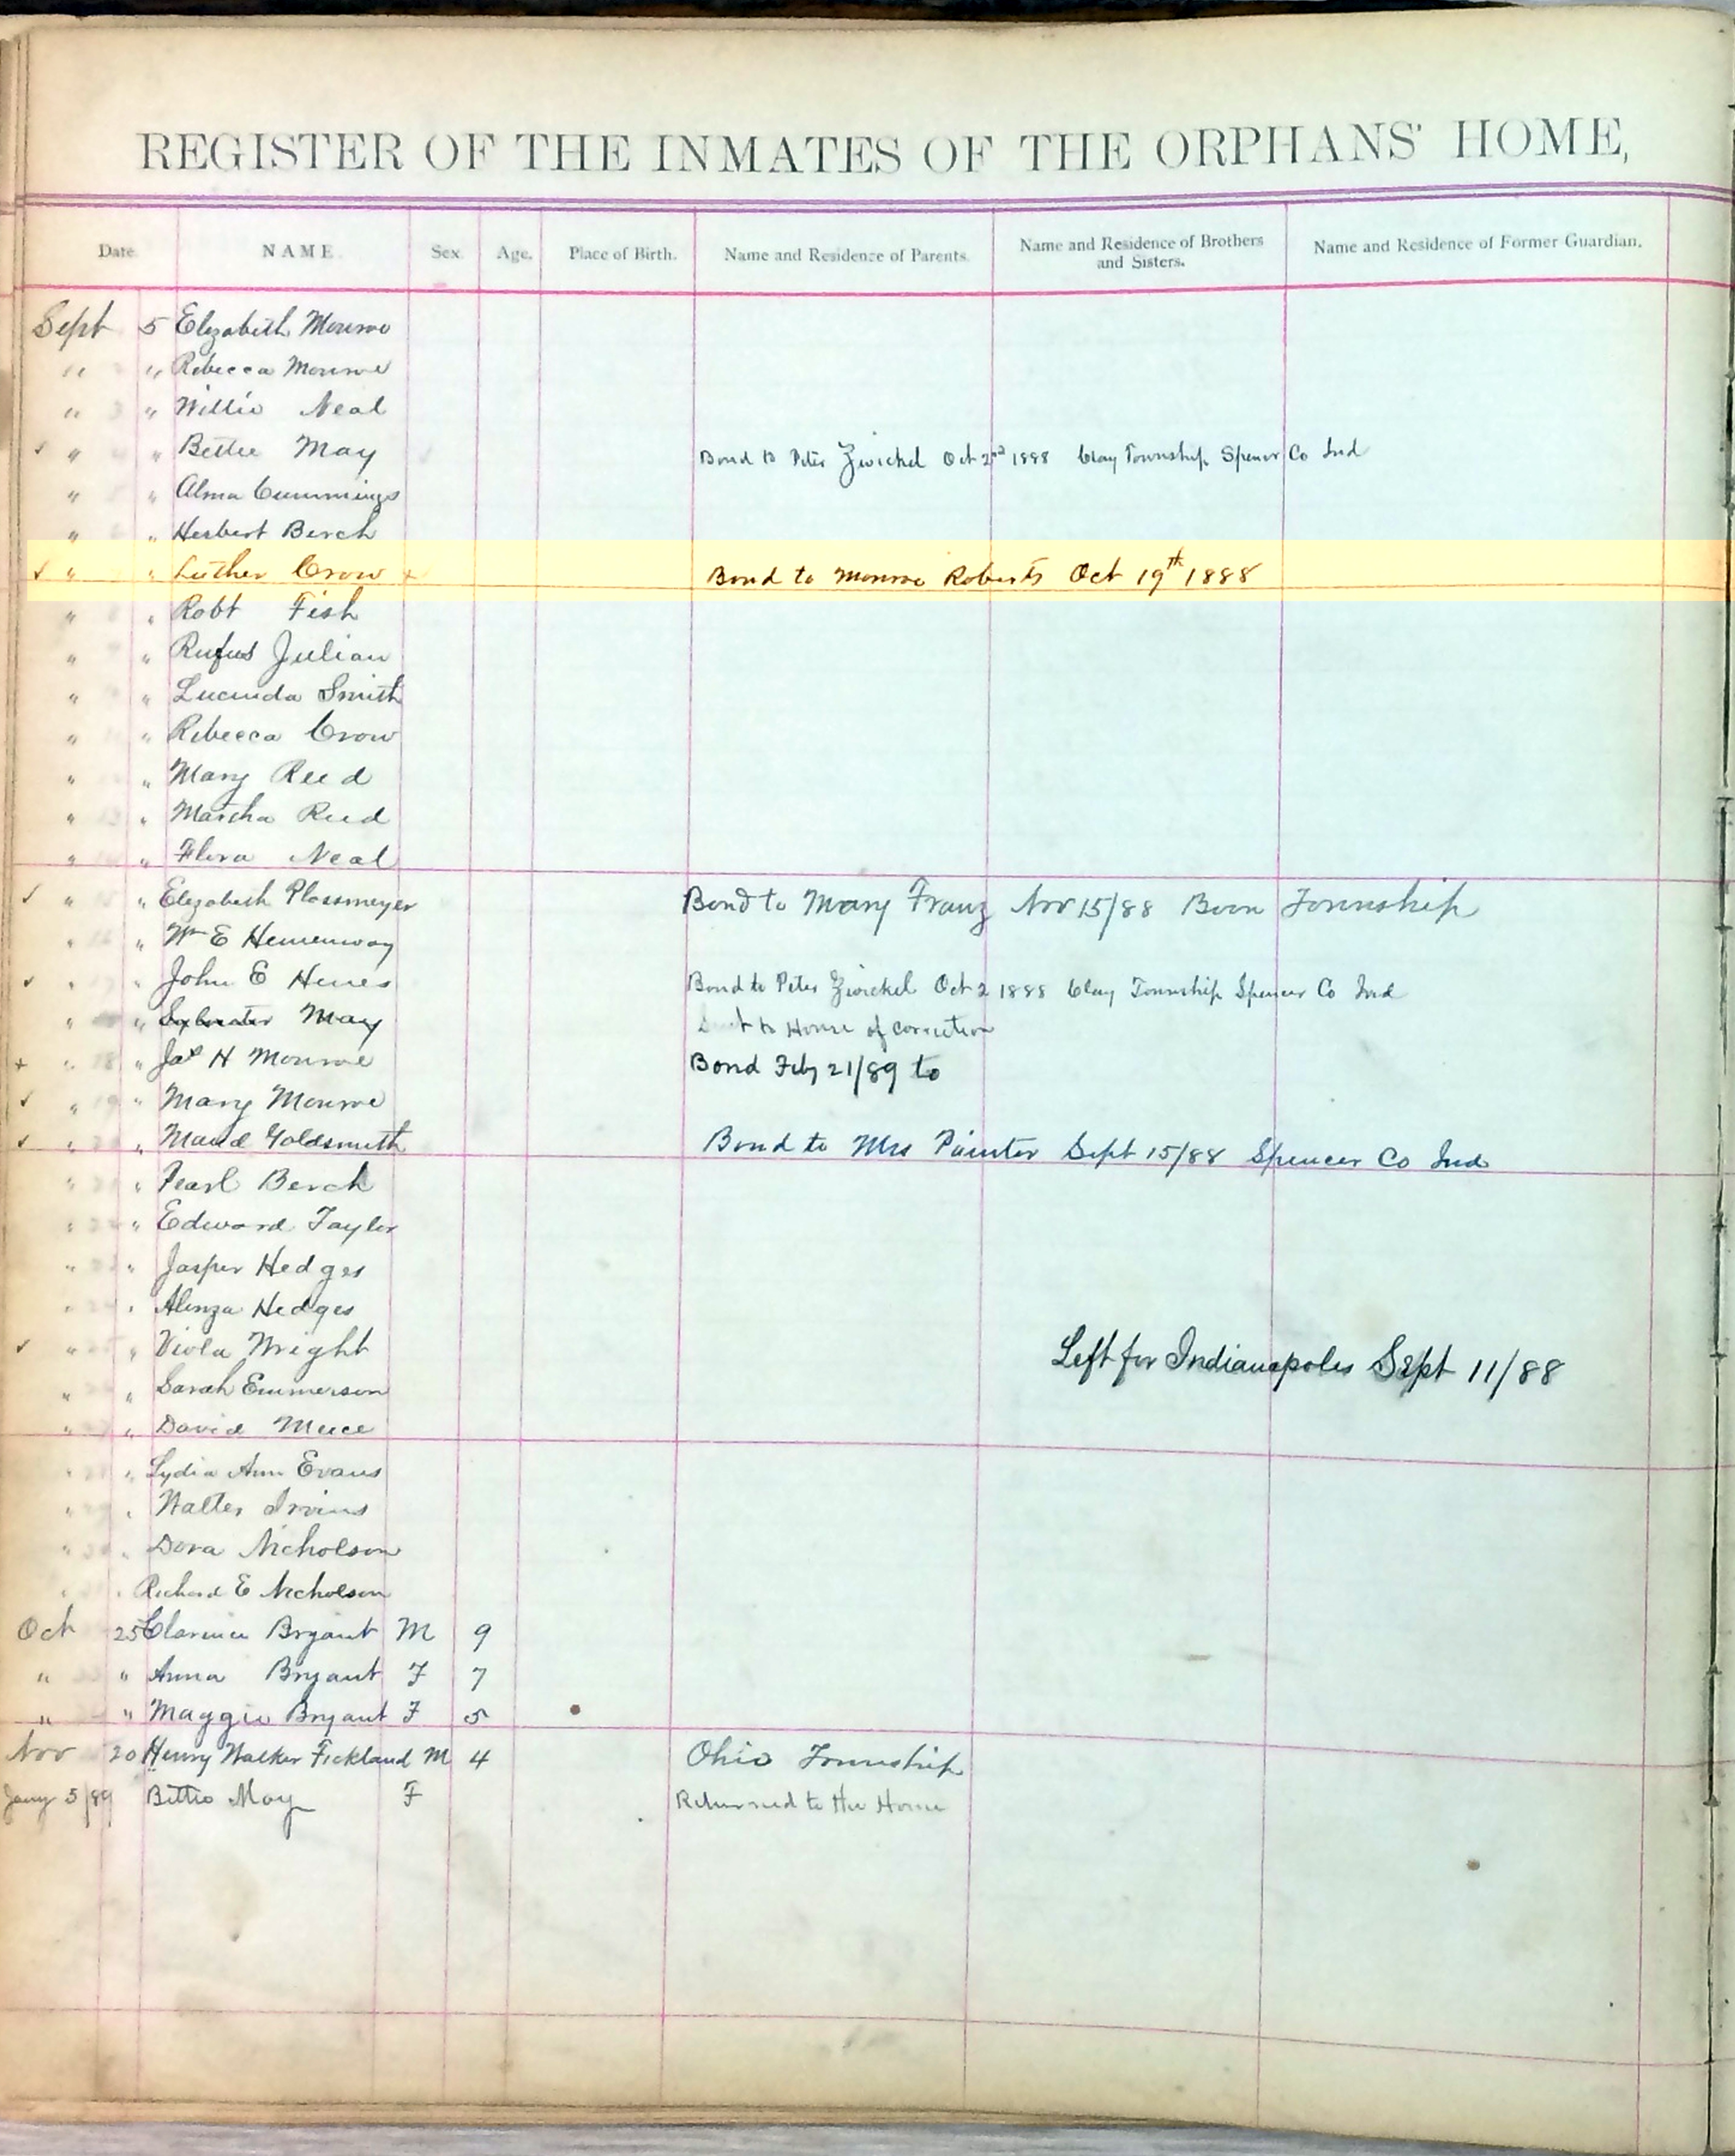 REGISTER OF THE INMATES OF THE ORPHANS' HOME,
Date. NAME. Sex. Age. Place of Birth. Name and Residence of Parents. Name and Residence of Brothers and Sisters. Name and Residence of Former Guardian.
Sept 5 Elizabeth Monroe
" " Rebecca Monroe
" " Willie Neal
✓ " " Bettie May Bond to Peter Zwickel Oct 2nd 1888 Clay Township Spencer Co Ind
" " Alma Cummings
" " Herbert Berch
✓ " " Luther Crow + Bond to Monroe Roberts Oct 19th 1888
" " Robt Fish
" " Rufus Julian
" " Lucinda Smith
" " Rebecca Crow
" " Mary Reed
" " Martha Reed
" " Flora Neal
✓ " " Elizabeth Plassmeyer Bond to Mary Franz Nov 15/88 Boon Township
" " Wm E Hemenway
✓ " " John E Hines Bond to Peter Zwickel Oct 2 1888 Clay Township Spencer Co Ind
" " Sylvester May Sent to House of correction
+ " 18 " Jas H Monroe Bond Feby 21/89 to
✓ " 19 " Mary Monroe
✓ " " Maud Goldsmith Bond to Mrs Painter Sept 15/88 Spencer Co Ind
" " Pearl Berch
" " Edward Taylor
" " Jasper Hedges
" " Alonza Hedges
✓ " " Viola Wright Left for Indianapoles Sept 11/88
" " Sarah Emmerson
" " David Meece
" " Lydia Ann Evans
" " Walter Irvins
" " Dora Nicholson
" " Richard E Nicholson
Oct 25 Clarence Bryant M 9
" " Anna Bryant F 7
" " Maggie Bryant F 5
Nov 20 Henry Walker Fickland M 4 Ohio Township
Jany 5/89 Bettie May F Returned to the Home